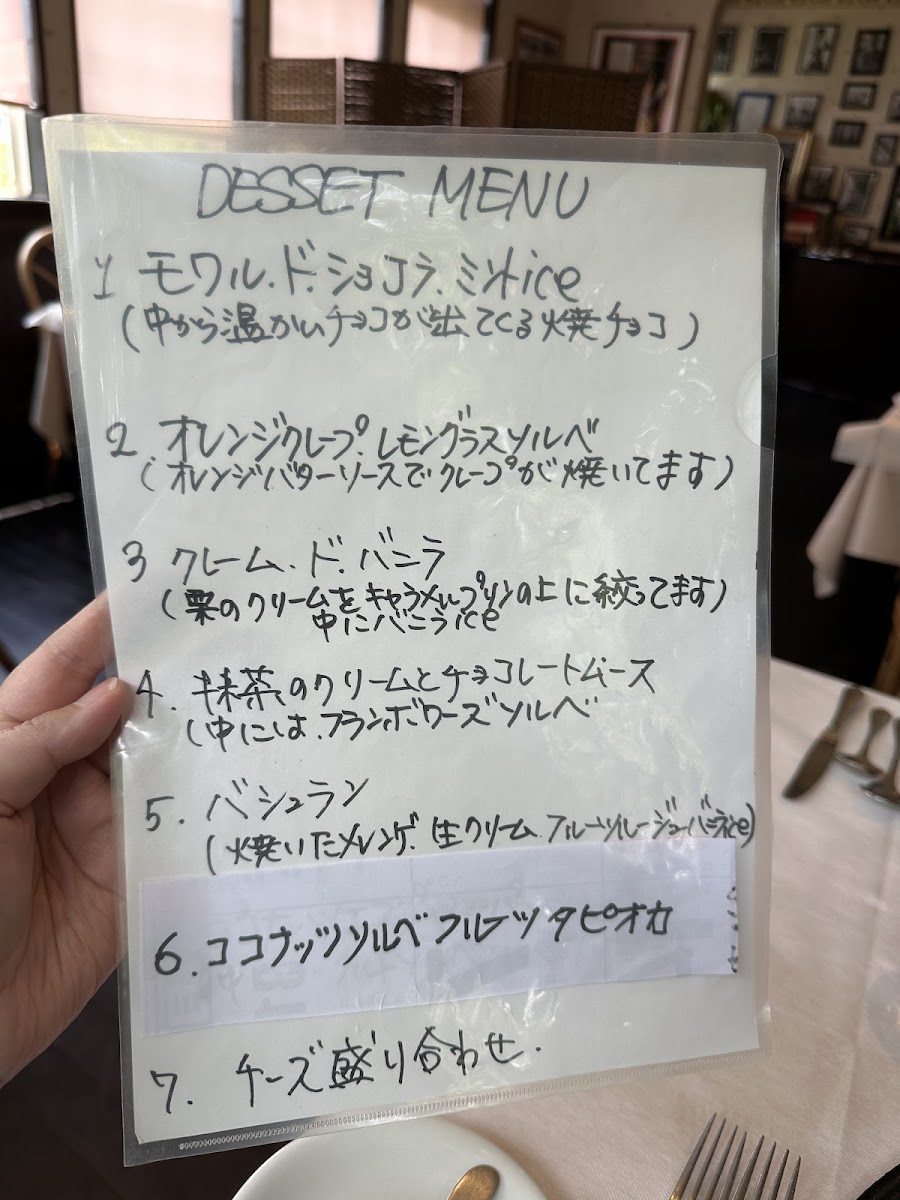 DESSET MENU
1 モワル.ド.ショコラ.ミントice
(中から温かいチョコが出てくる焼チョコ)
2. オレンジクレープ.レモングラスソルベ
(オレンジバターソースでクレープが焼いてます)
3 クレーム.ド.バニラ
(栗のクリームをキャラメルプリンの上に絞ってます)
中にバニラice
4. 抹茶のクリームとチョコレートムース
(中には.フランボワーズソルベ
5. バシュラン
(焼いたメレンゲ.生クリーム.フルーツルージュ.バニラice)
6. ココナッツソルベフルーツタピオカ
7. チーズ盛り合わせ.